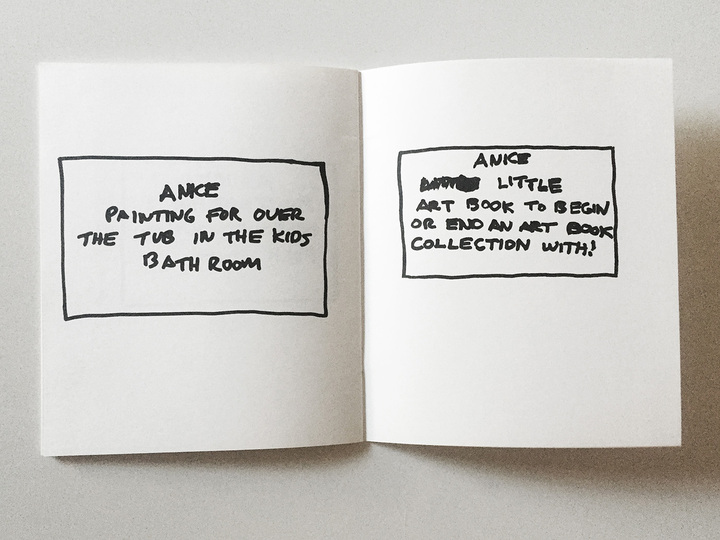 ANICE
PAINTING FOR OVER
THE TUB IN THE KIDS
BATH ROOM
ANICE
LITTLE
ART BOOK TO BEGIN
OR END AN ART BOOK
COLLECTION WITH!